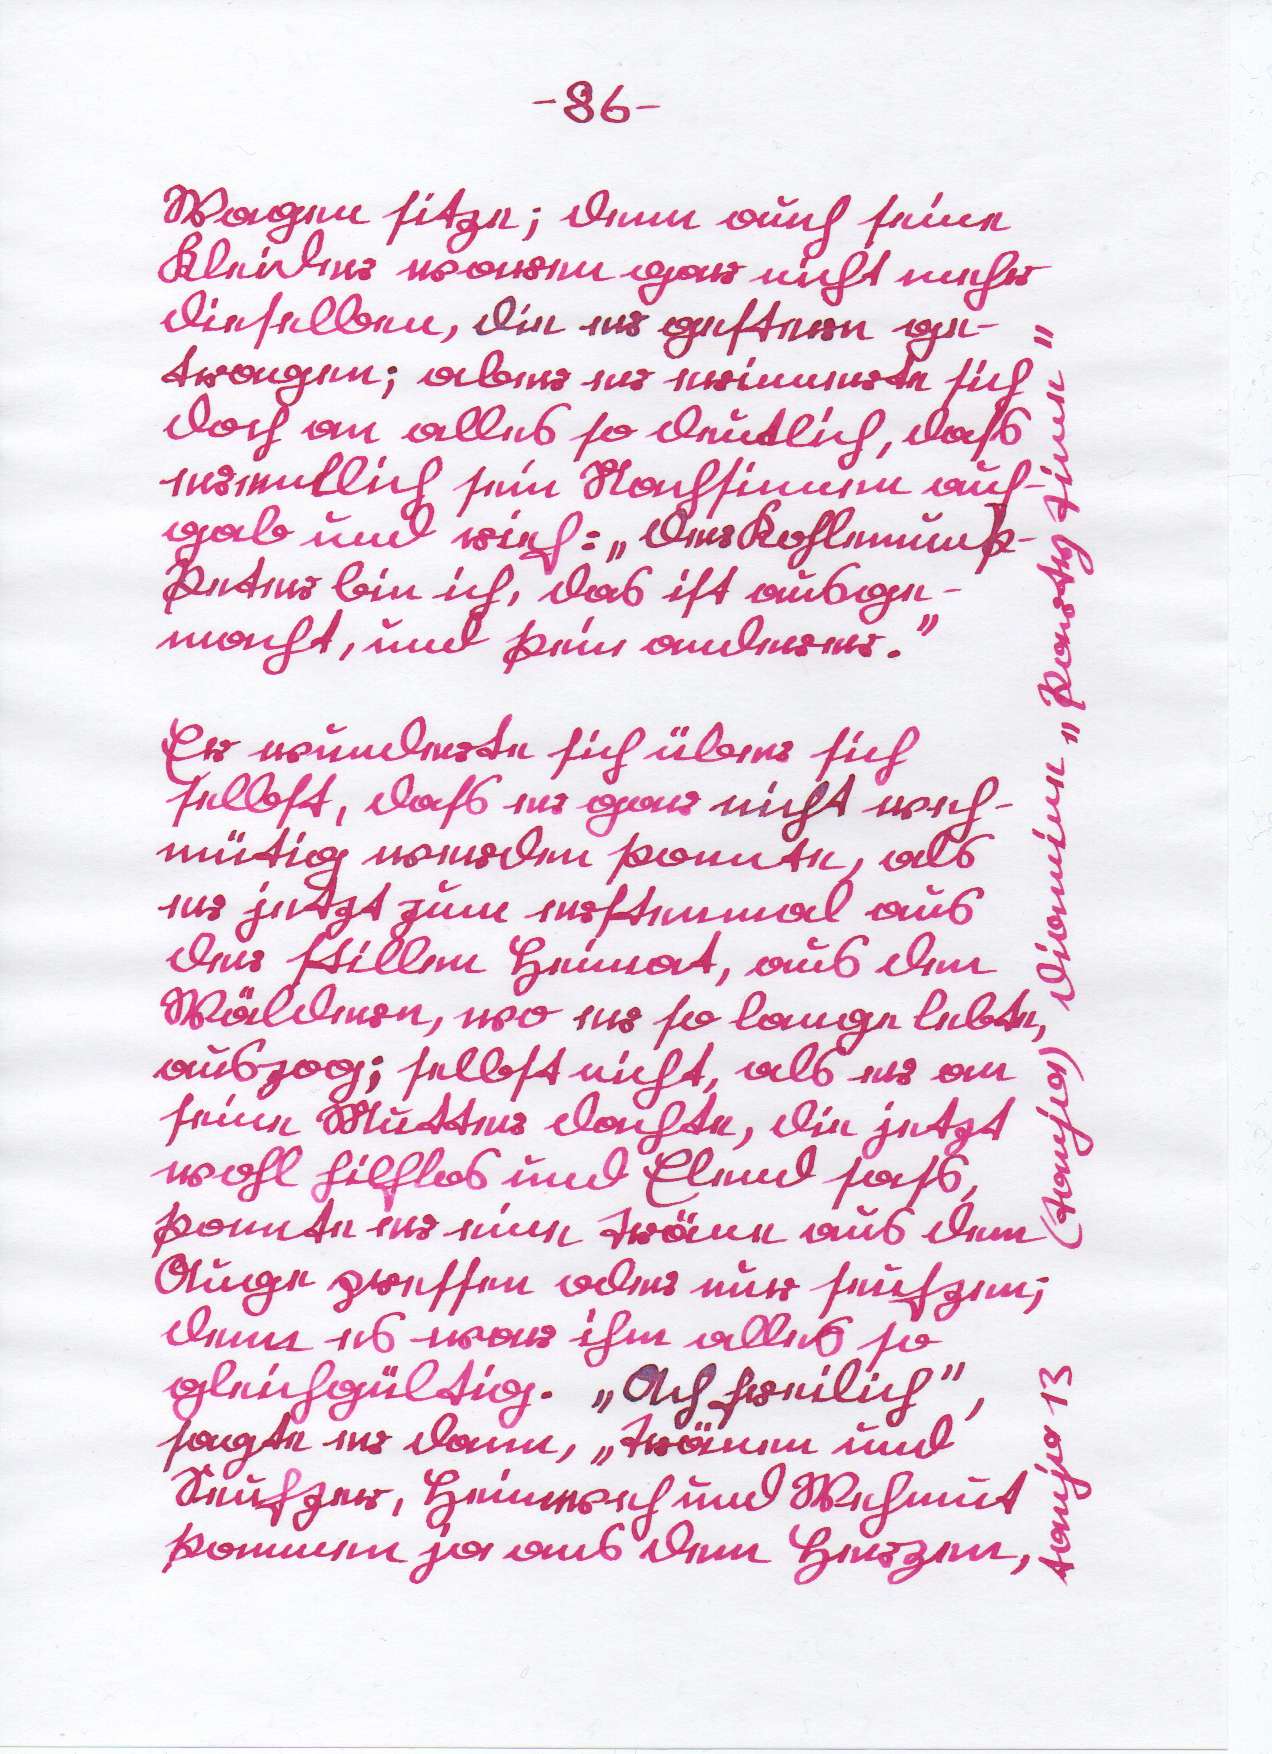 -86-
Wagen sitze; denn auch seine
Kleider waren gar nicht mehr
dieselben, die er gestern ge-
tragen; aber er erinnerte sich
doch an alles so deutlich, dass
er endlich sein Nachsinnen auf-
gab und rief: „der Kohlenmunk-
Peter bin ich, das ist ausge-
macht, und kein anderer."
Er wunderte sich über sich
selbst, dass er gar nicht weh-
mütig werden konnte, als
er jetzt zum erstenmal aus
der stillen Heimat, aus den
Wäldern, wo er so lange lebte,
auszog; selbst nicht, als er an
seine Mutter dachte, die jetzt
wohl hilflos und Elend sass,
konnte er eine Träne aus dem
Auge pressen oder nur seufzen;
denn es war ihm alles so
gleichgültig. „Ach freilich",
sagte er dann, „Tränen und
Seufzer, Heimweh und Wehmut
kommen ja aus dem Herzen,
tanja 13 (tanja) diamine „Party Time"